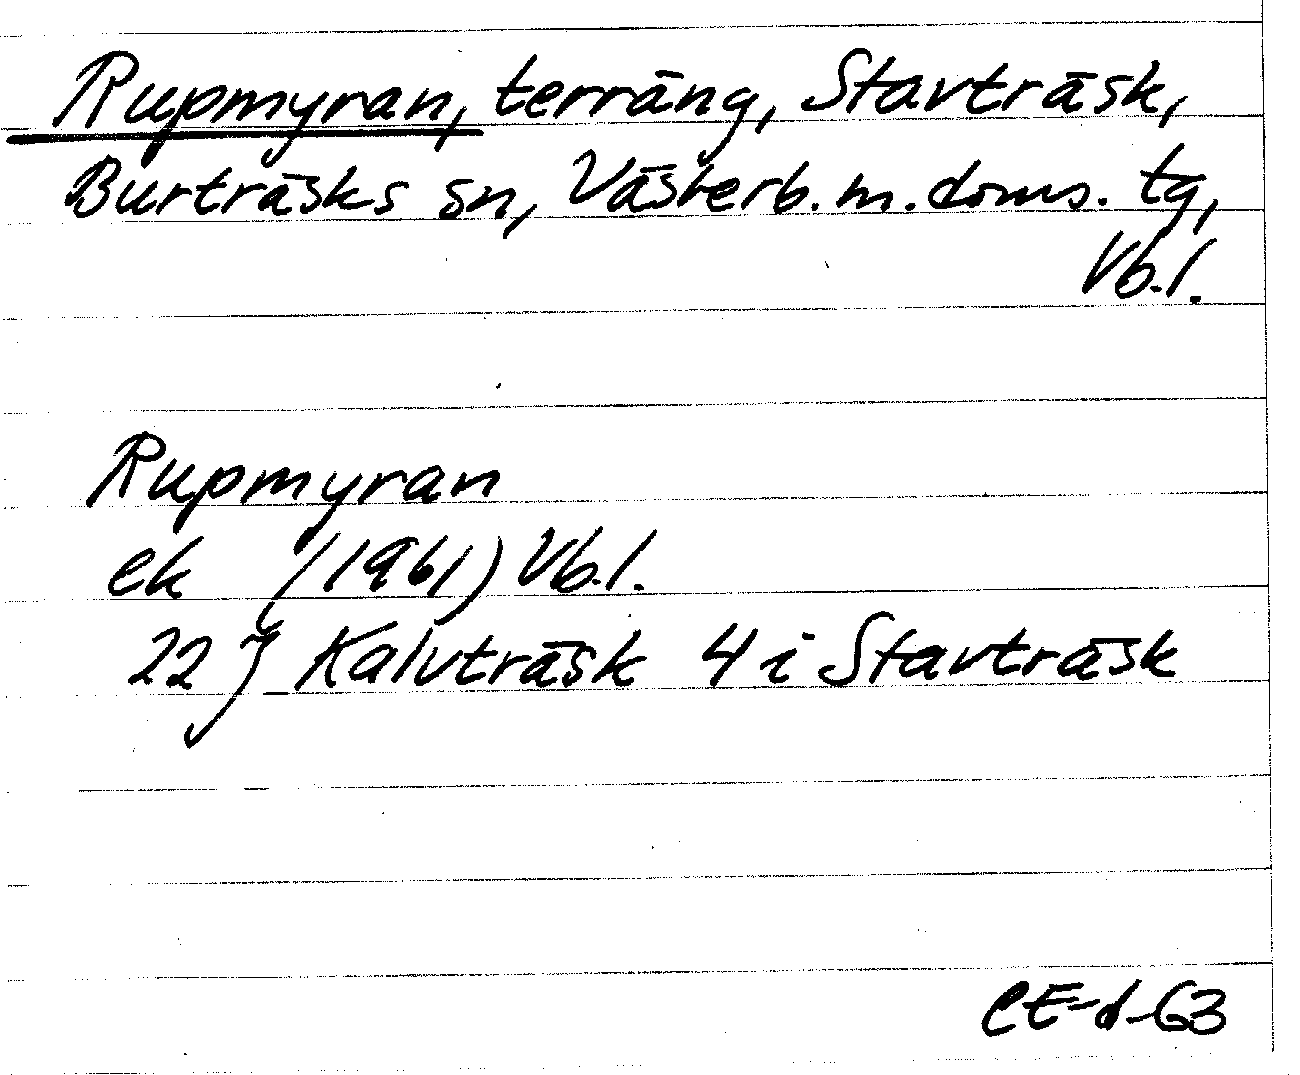 Rupmyran, terräng, Stavträsk,
Burträsks sn, Västerb. m. doms. tg,
Vb.l.
Rupmyran
ek (1961) Vb.l.
22 J Kalvträsk 4 i Stavträsk
CE-d-63